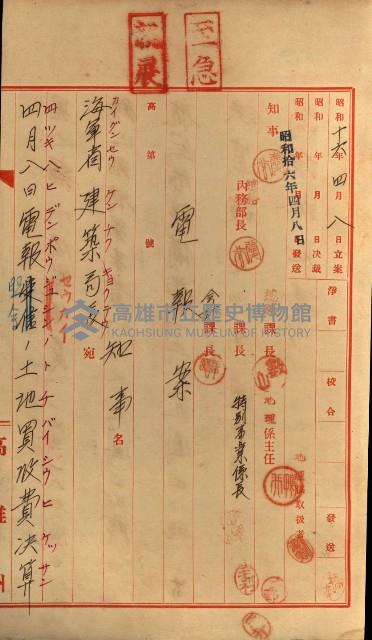 至急
昭和十六年四月八日立案
昭和 年 月 日決裁
昭和 年 月 日發送
昭和拾六年四月八日
淨書
校合
發送
知事
內務部長
會計課長
課長
地理係主任
特別事業係長
地理係取扱者
電報案
高第 號
海軍省建築局長宛
カイグンセウケンチクキヨクテウ
知事名
四ツキ八ヒデンポウ
トチバイシウヒケツサン
四月八日電報
照會ノ土地買收費決算
セウカイ
高雄市立歷史博物館
KAOHSIUNG MUSEUM OF HISTORY
高雄州